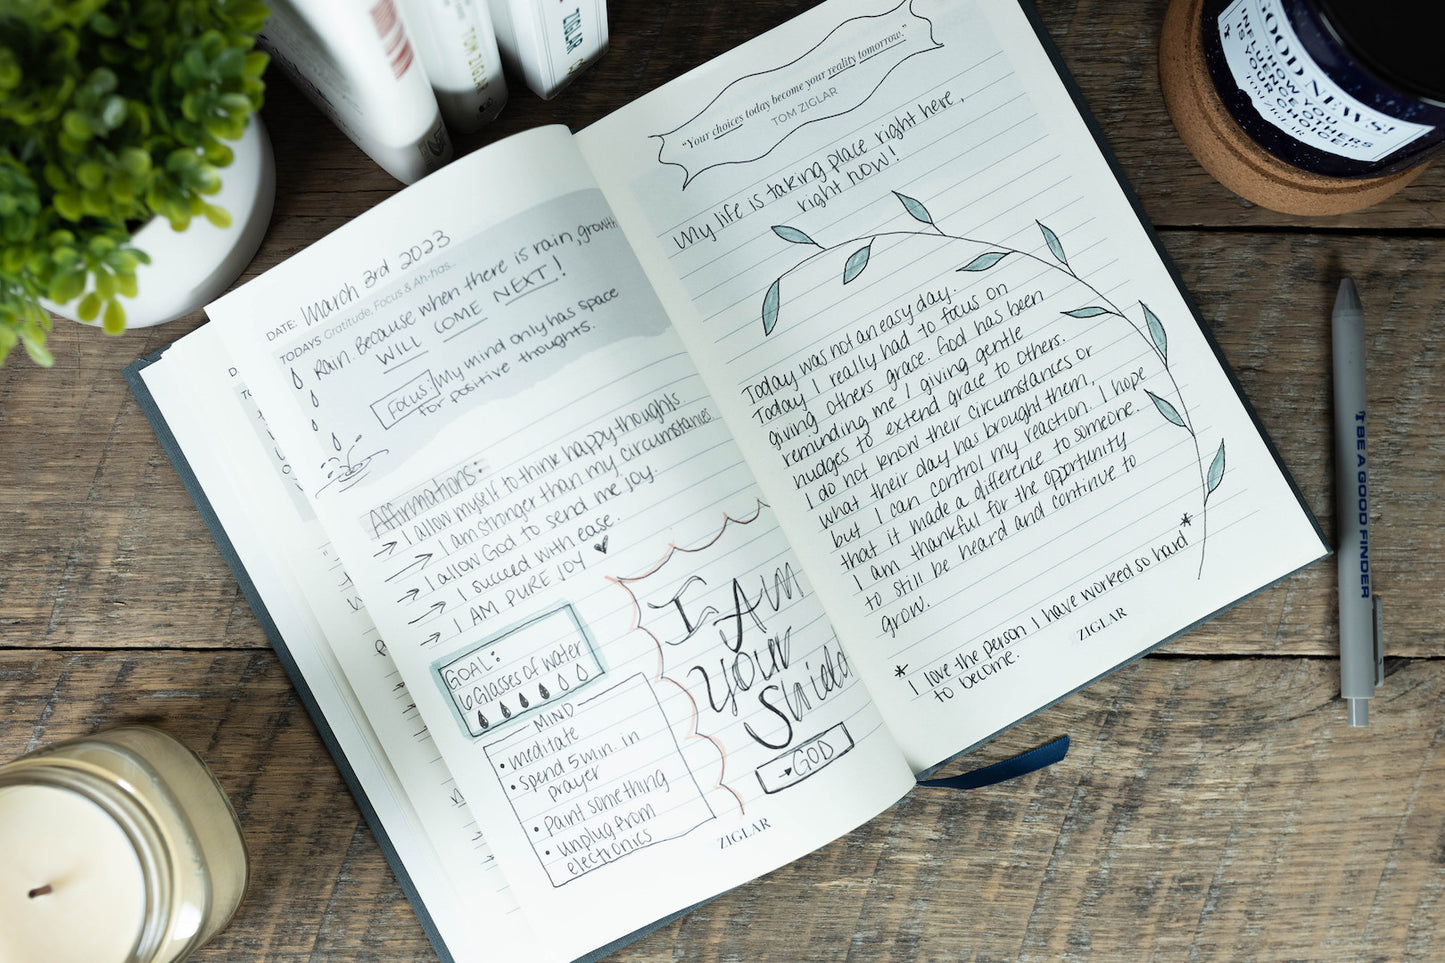 DATE: March 3rd 2023
TODAYS Gratitude, Focus & Ah-has...
Rain. Because when there is rain, growth
WILL COME NEXT!
Focus: My mind only has space
for positive thoughts.
Affirmations:
→ I allow myself to think happy thoughts
→ I am stronger than my circumstances
→ I allow God to send me joy.
→ I succeed with ease.
→ I AM PURE JOY ♥
GOAL:
6 Glasses of water
MIND
• meditate
• Spend 5 min. in
prayer
• Paint something
• unplug from
electronics
I AM
your
Shield
→GOD
ZIGLAR
"Your choices today become your reality tomorrow."
TOM ZIGLAR
My life is taking place right here,
right now!
Today was not an easy day.
Today I really had to focus on
giving others grace. God has been
reminding me / giving gentle
nudges to extend grace to others.
I do not know their circumstances or
what their day has brought them,
but I can control my reaction. I hope
that it made a difference to someone.
I am thankful for the opportunity
to still be heard and continue to
grow.
* I love the person I have worked so hard *
to become.
ZIGLAR
TOM ZIGLAR
ZIGLAR
GOOD NEWS!
"HOW YOU
INFLUENCE OTHERS
IS YOUR CHOICE!"
TOM ZIGLAR
BE A GOOD FINDER